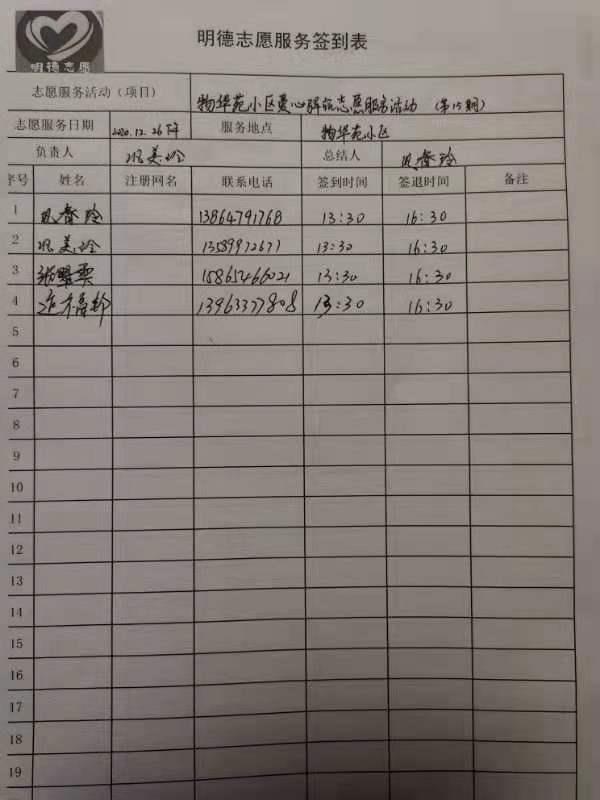 明德志愿
明德志愿服务签到表
志愿服务活动（项目） 物华苑小区爱心 志愿服务活动 （第15期）
志愿服务日期 2020.12.26下午 服务地点 物华苑小区
负责人 美玲 总结人 玲
序号 姓名 注册网名 联系电话 签到时间 签退时间 备注
1 玲 13864791768 13:30 16:30
2 美玲 13589972671 13:30 16:30
3 15865466021 13:30 16:30
4 13963377808 13:30 16:30
5
6
7
8
9
10
11
12
13
14
15
16
17
18
19